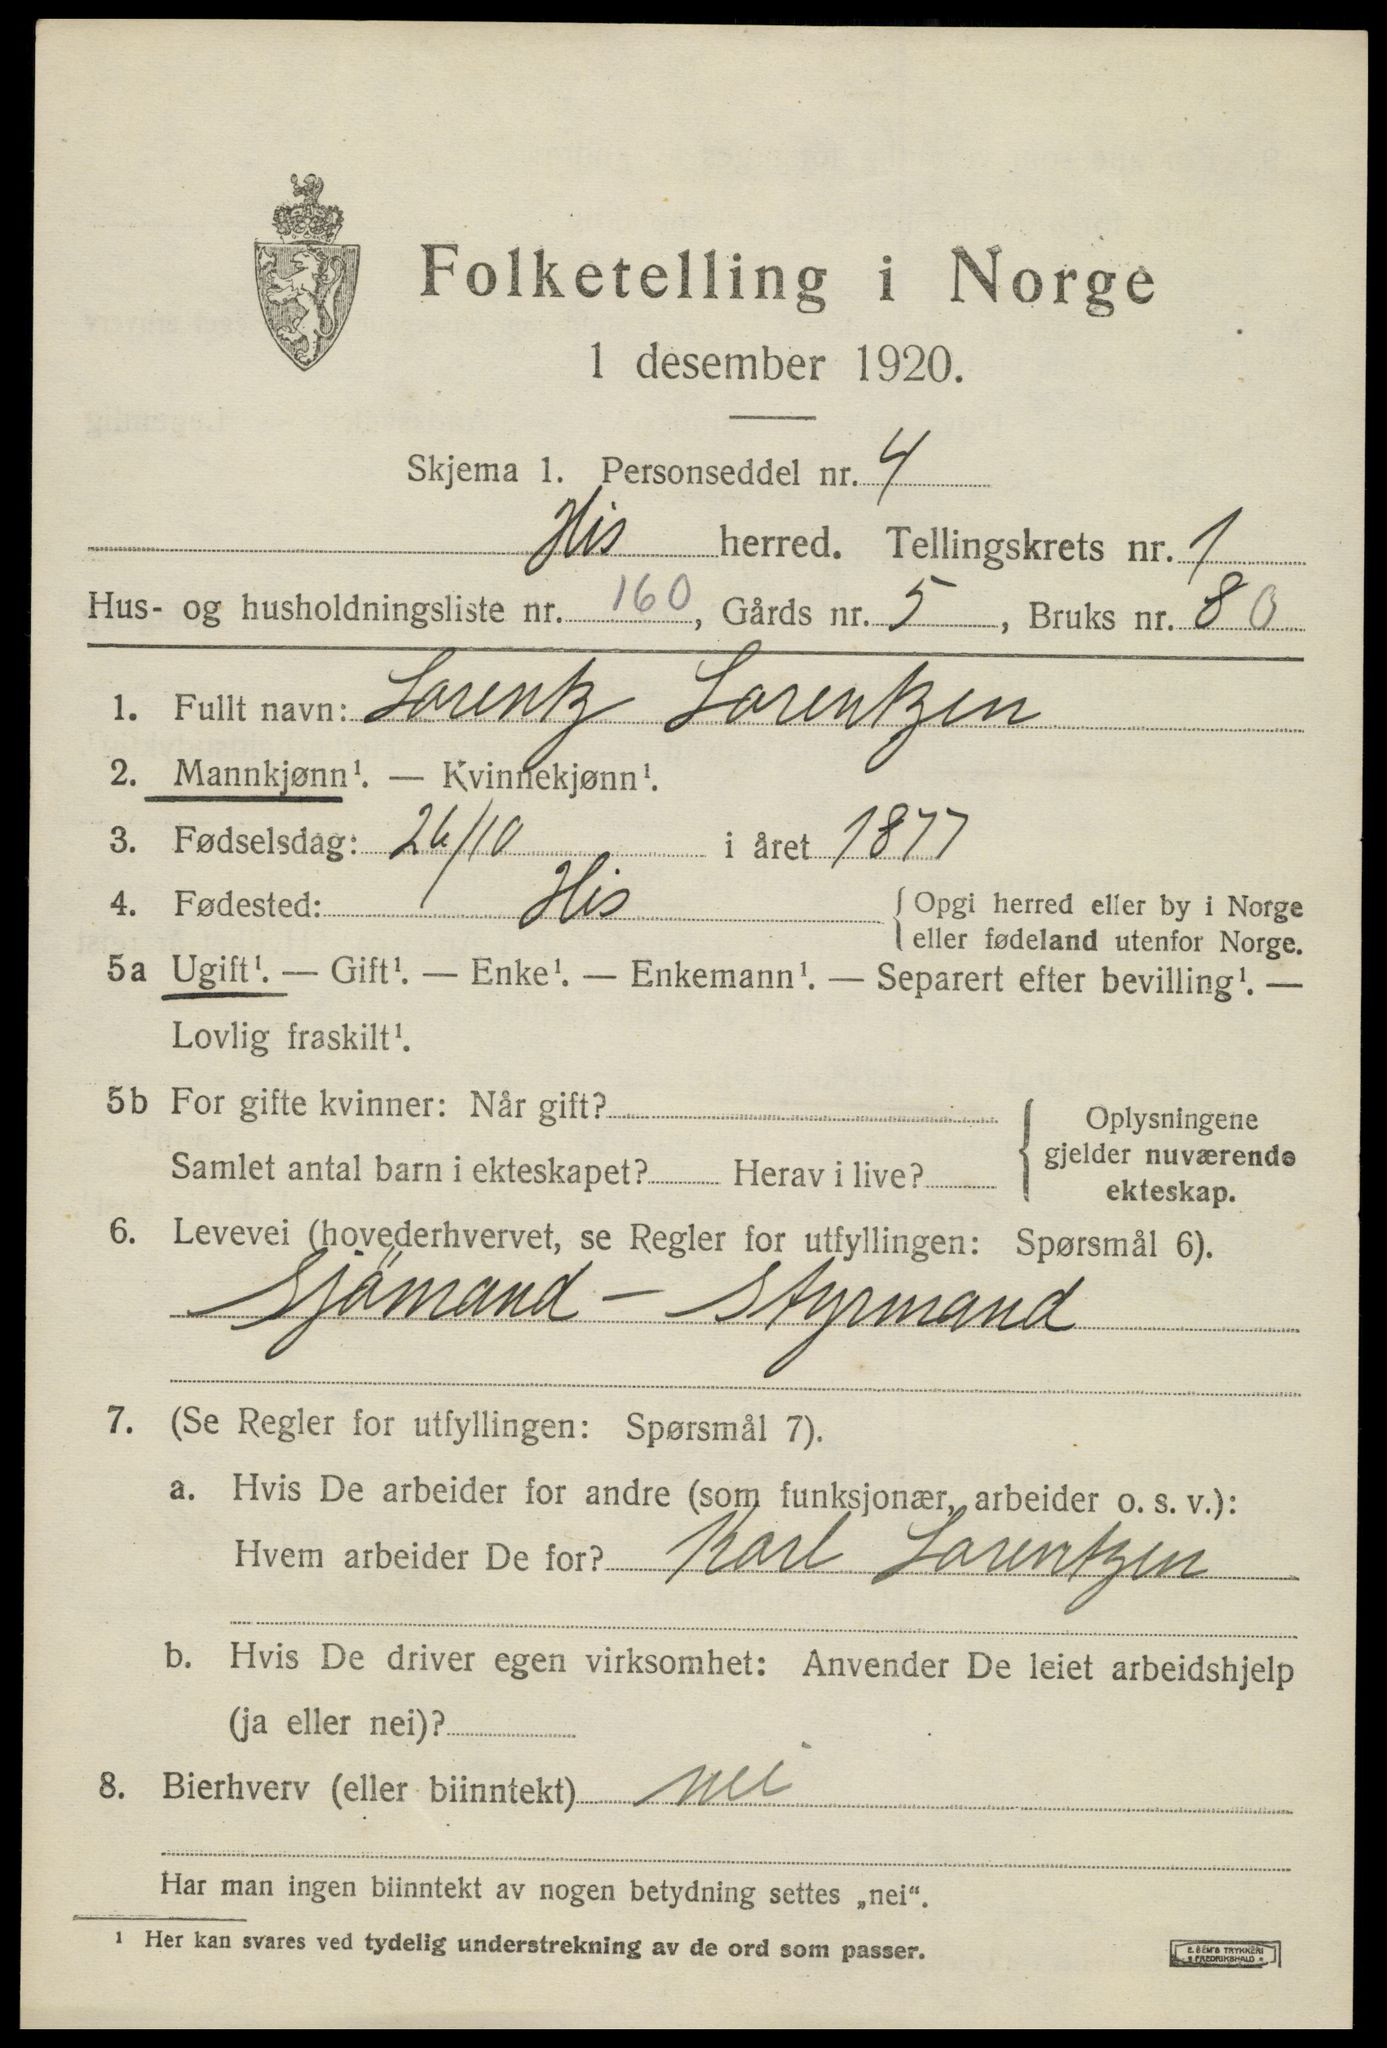 Folketelling i Norge
1 desember 1920.
Skjema 1. Personseddel nr. 4
His herred. Tellingskrets nr. 1
Hus- og husholdningsliste nr. 160, Gårds nr. 5, Bruks nr. 80
1. Fullt navn: Lorentz Lorentzen
2. Mannkjønn¹. — Kvinnekjønn¹.
3. Fødselsdag: 26/10 i året 1877
4. Fødested: His { Opgi herred eller by i Norge
eller fødeland utenfor Norge.
5a Ugift¹. — Gift¹. — Enke¹. — Enkemann¹. — Separert efter bevilling¹. —
Lovlig fraskilt¹.
5b For gifte kvinner: Når gift?
Samlet antal barn i ekteskapet? Herav i live?
{ Oplysningene
gjelder nuværende
ekteskap.
6. Levevei (hovederhvervet, se Regler for utfyllingen: Spørsmål 6).
Sjömand - Styrmand
7. (Se Regler for utfyllingen: Spørsmål 7).
a. Hvis De arbeider for andre (som funksjonær, arbeider o. s. v.):
Hvem arbeider De for? Karl Lorentzen
b. Hvis De driver egen virksomhet: Anvender De leiet arbeidshjelp
(ja eller nei)?
8. Bierhverv (eller biinntekt) nei
Har man ingen biinntekt av nogen betydning settes „nei".
¹ Her kan svares ved tydelig understrekning av de ord som passer.
E. SEM'S TRYKKERI
FREDRIKSHALD